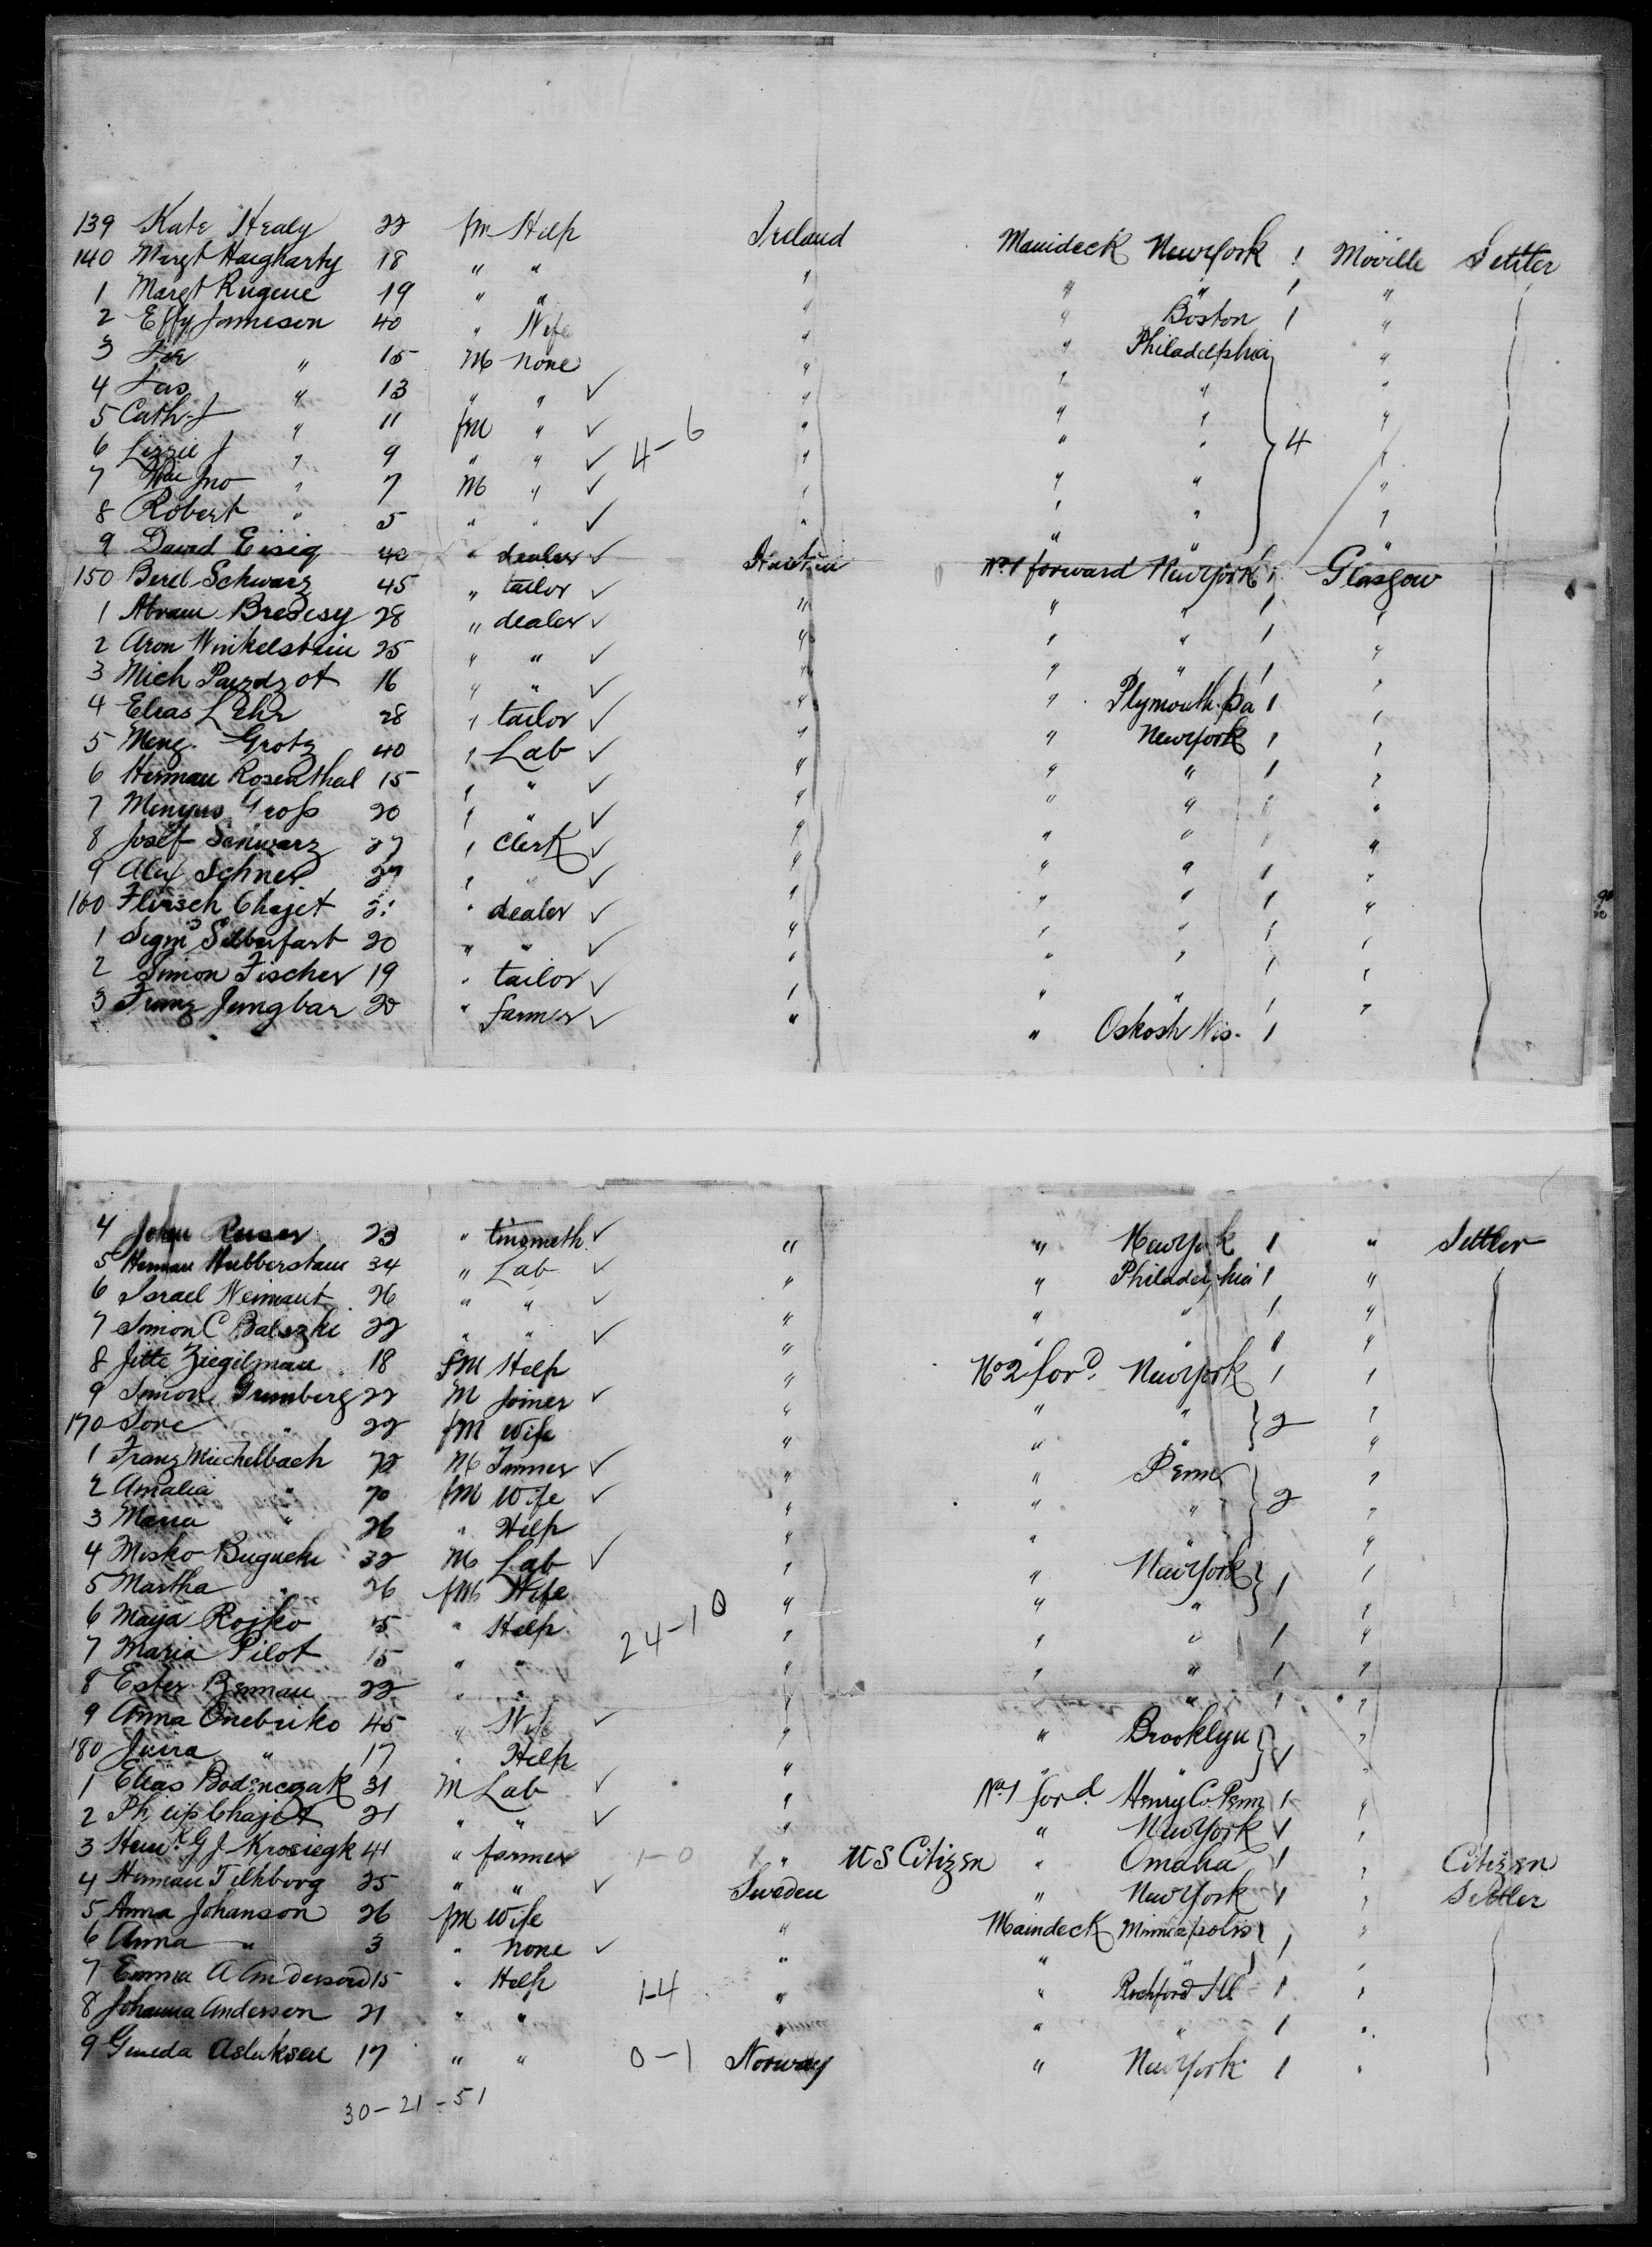 139 Kate Healy 22 fm Help Ireland Mauideck New York 1 Moville Settler
140 Margt Haegharty 18 " " " " " 1 "
1 Margt Rugene 19 " " " " Boston 1 "
2 Effy Jameson 40 " Wife " " Philadelphia "
3 " 15 M none " " " "
4 Jas " 13 " " ✓ " " " "
5 Cath J " 11 fM " ✓ " " " 4 "
6 Lizzie J " 9 " " ✓ 4-6 " " " "
7 Wm Jno " 7 M " ✓ " " " "
8 Robert " 5 " " ✓ " " " "
9 David Eisig 40 " dealer ✓ Austria No 1 forward New York 1 Glasgow
150 Berel Schwarz 45 " tailor ✓ " " " 1 "
1 Abram Bredesy 28 " dealer ✓ " " " 1 "
2 Aron Winkelstein 25 " " ✓ " " " 1 "
3 Mich 16 " " ✓ " " Plymouth Pa 1 "
4 Elias Lehr 28 " tailor ✓ " " New York 1 "
5 Meng Grotz 40 " Lab ✓ " " " 1 "
6 Herman Rosenthal 15 " " ✓ " " " 1 "
7 Menyus Gross 20 " " ✓ " " " 1 "
8 Josef Schwarz 27 " Clerk ✓ " " " 1 "
9 Alex Schner 27 " " ✓ " " " 1 "
160 Flirsch Chajet " dealer ✓ " " " 1 "
1 Sigmd Silberfarb 20 " " ✓ " " " 1 "
2 Simon Fischer 19 " tailor ✓ " " " 1 "
3 Franz Jungbar 20 " farmer ✓ " " Oskosh Wis. 1
4 John Ruser 23 " tinsmeth ✓ " " New York 1 " Settler
5 Herman Hubberstam 34 " Lab ✓ " " Philadelphia 1 "
6 Israel Weimaut 26 " " ✓ " " " 1 "
7 Simon C Balszki 22 " " ✓ " " " 1 "
8 Jitte Ziegilman 18 fM Help " No 2 ford New York 1 "
9 Simon Grunberg 22 M Joiner ✓ " " " 2 "
170 Sore " 22 fM Wife " " " "
1 Franz Michelbach 72 M Tanner ✓ " " Penn 2 "
2 Amalia " 70 fM Wife ✓ " " " "
3 Maria " 26 " Help " " " "
4 Misko Buguchi 32 M Lab ✓ " " New York 1 "
5 Martha " 26 fM Wife " " " "
6 Maya Rojko 15 " Help 24-10 " " " 1 "
7 Maria Pilot 15 " " " " " 1 "
8 Ester Berman 22 " " " " 1 "
9 Anna Onebriko 45 " Wife ✓ " " Brooklyn 1 "
180 " 17 " Help " " " "
1 Elias Bodenczak 31 M Lab ✓ " No 1 ford Henry Co. Penn 1 "
2 Philip Chajet 21 " " ✓ " " New York 1 "
3 G J Krosiegk 41 " farmer 1-0 X " US Citizen " Omaha 1 " Citizen
4 Herman Tilhborg 25 " " ✓ Sweden " New York 1 " Settler
5 Anna Johanson 26 fM Wife " Maindeck Minneapolis 1 "
6 Anna " 3 " none ✓ " " " "
7 Emma A Anderson 15 " Help 1-4 " " Rockford Ill 1 "
8 Johanna Anderson 21 " " " " " 1 "
9 Gineda Asluksen 17 " " 0-1 Norway " New York 1 "
30-21-51